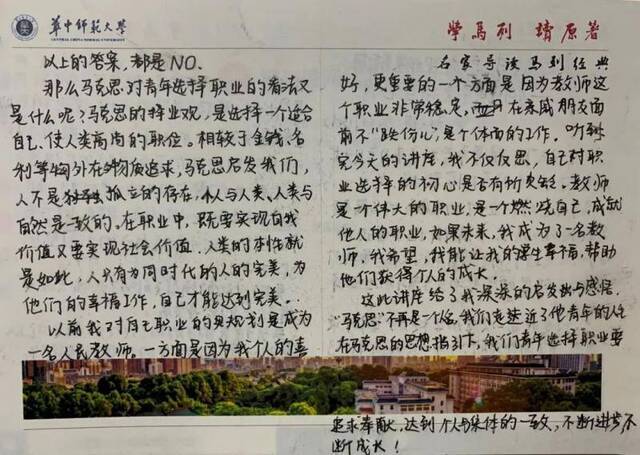 華中師範大學
CENTRAL CHINA NORMAL UNIVERSITY
學馬列 讀原著
名家导读马列经典
以上的答案,都是NO.
那么马克思对青年选择职业的看法又
是什么呢?马克思的择业观,是选择一个适合
自己、使人类高尚的职位。相较于金钱、名
利等外在物质追求,马克思启发我们,
人不是孤立的存在,人与人类、人类与
自然是一致的。在职业中,既要实现自我
价值又要实现社会价值.人类的本性就
是如此,人只有为同时代的人的完美,为
他们的幸福工作,自己才能达到完美.
以前我对自己职业的规划是成为
一名人民教师。一方面是因为我个人的喜
好,更重要的一个方面是因为教师这
个职业非常稳定,在亲戚朋友面
前不“跌份儿”,是个体面的工作。听
完今天的讲座,我不仅反思,自己对职
业选择的初心是否有所欠缺。教师
是个伟大的职业,是一个燃烧自己,成就
他人的职业,如果未来,我成为了一名教
师,我希望,我能让我的学生幸福,帮助
他们获得个人的成长.
这此讲座给了我深深的启发与感悟.
“马克思”不再是一个人名,我们走进了他青年的人生
在马克思的思想指引下,我们青年选择职业要
追求奉献,达到个人与集体的一致,不断进步,不
断成长!